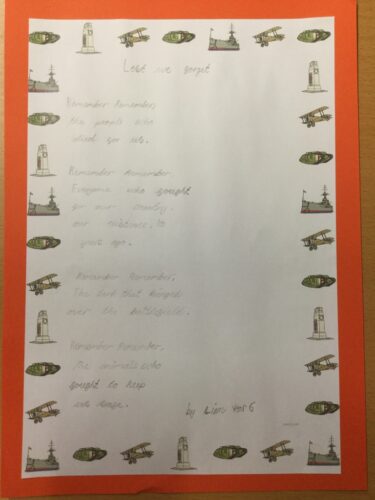 Lest we forget
Remember Remember,
the people who
died for us.
Remember Remember.
Everyone who fought
for our country
our existence. 
years ago.
Remember Remember,
The dark that
over the battlefield.
Remember Remember.
The animals who
fought to keep
us
by Yor 6